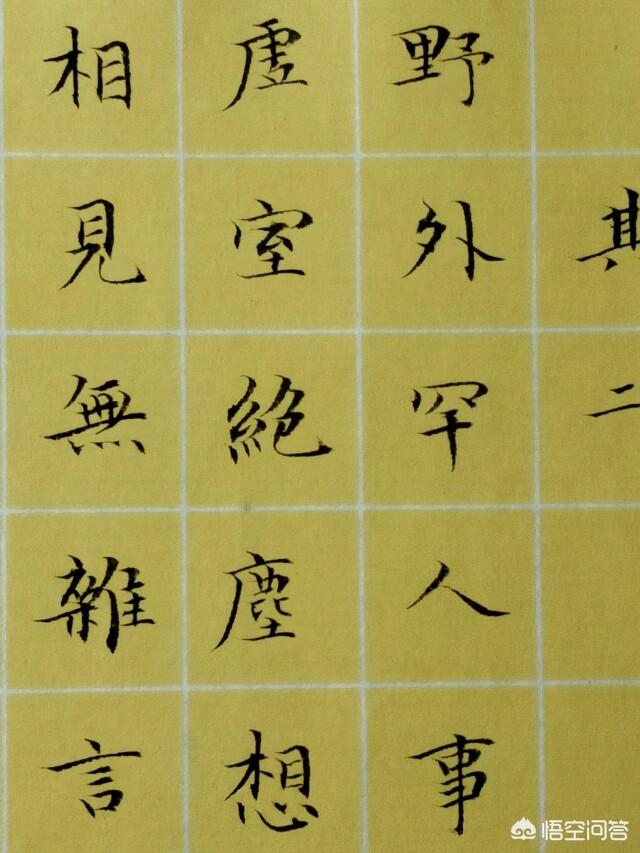 其二
野外罕人事
虚室絶塵想
相見無雜言
悟空问答